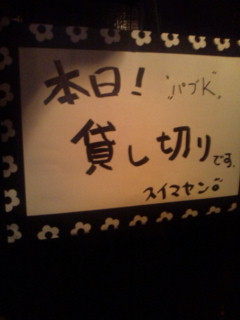 本日! "パブK"
貸し切りです。
スイマセン